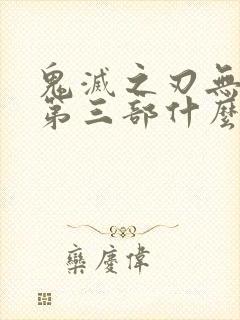 鬼滅之刃無
第三部什麼
欒慶偉